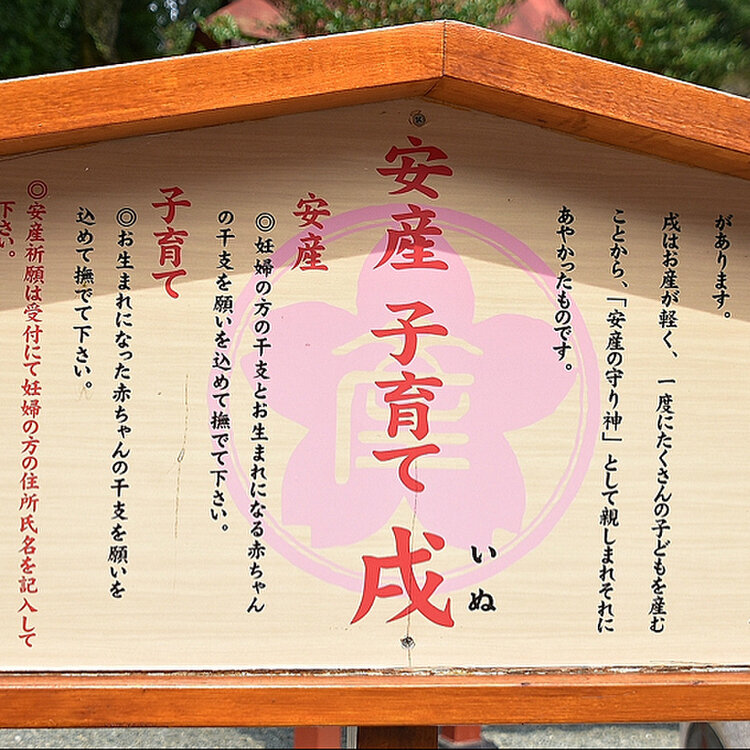 があります。
戌はお産が軽く、一度にたくさんの子どもを産む
ことから、「安産の守り神」として親しまれそれに
あやかったものです。
安産 子育て 戌
いぬ
安産
◎妊婦の方の干支とお生まれになる赤ちゃん
の干支を願いを込めて撫でて下さい。
子育て
◎お生まれになった赤ちゃんの干支を願いを
込めて撫でて下さい。
◎安産祈願は受付にて妊婦の方の住所氏名を記入して
下さい。